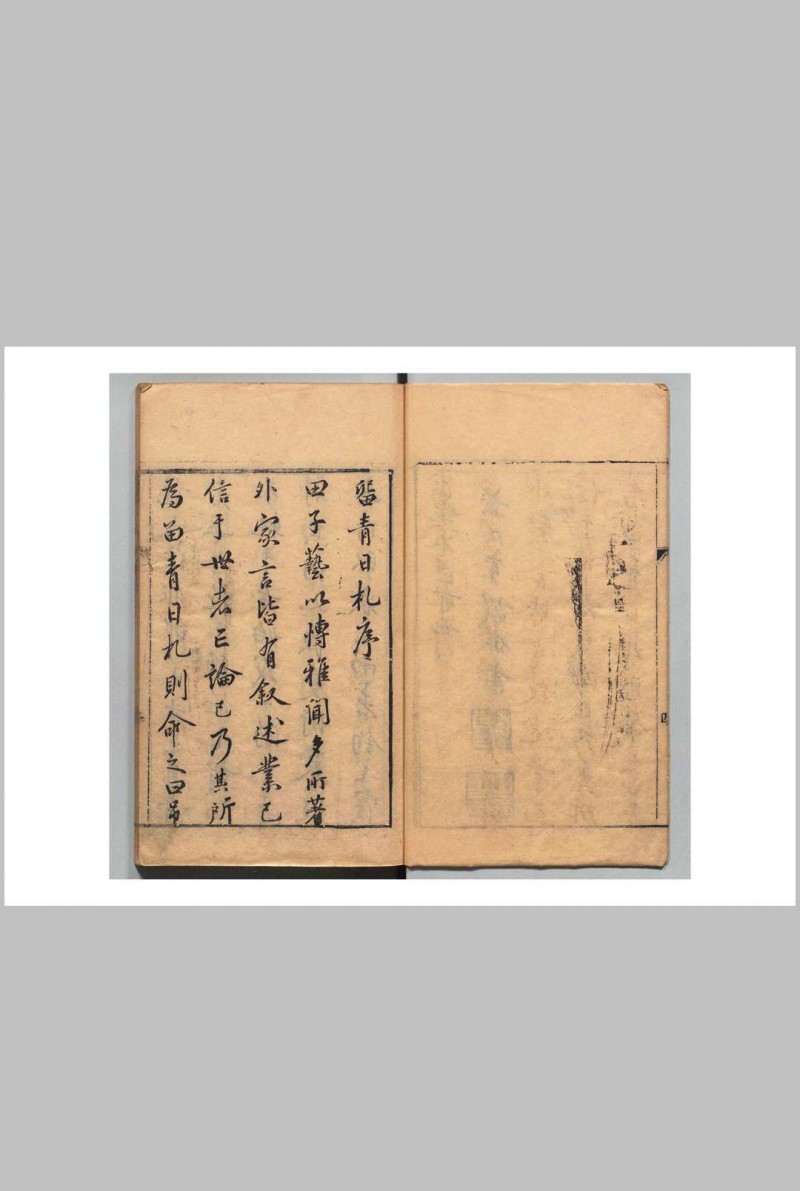 留青日札序
田子藝以博雅聞多所著
外家言皆有叙述業已
信于世者亡論已乃其所
為留青日札則命之曰